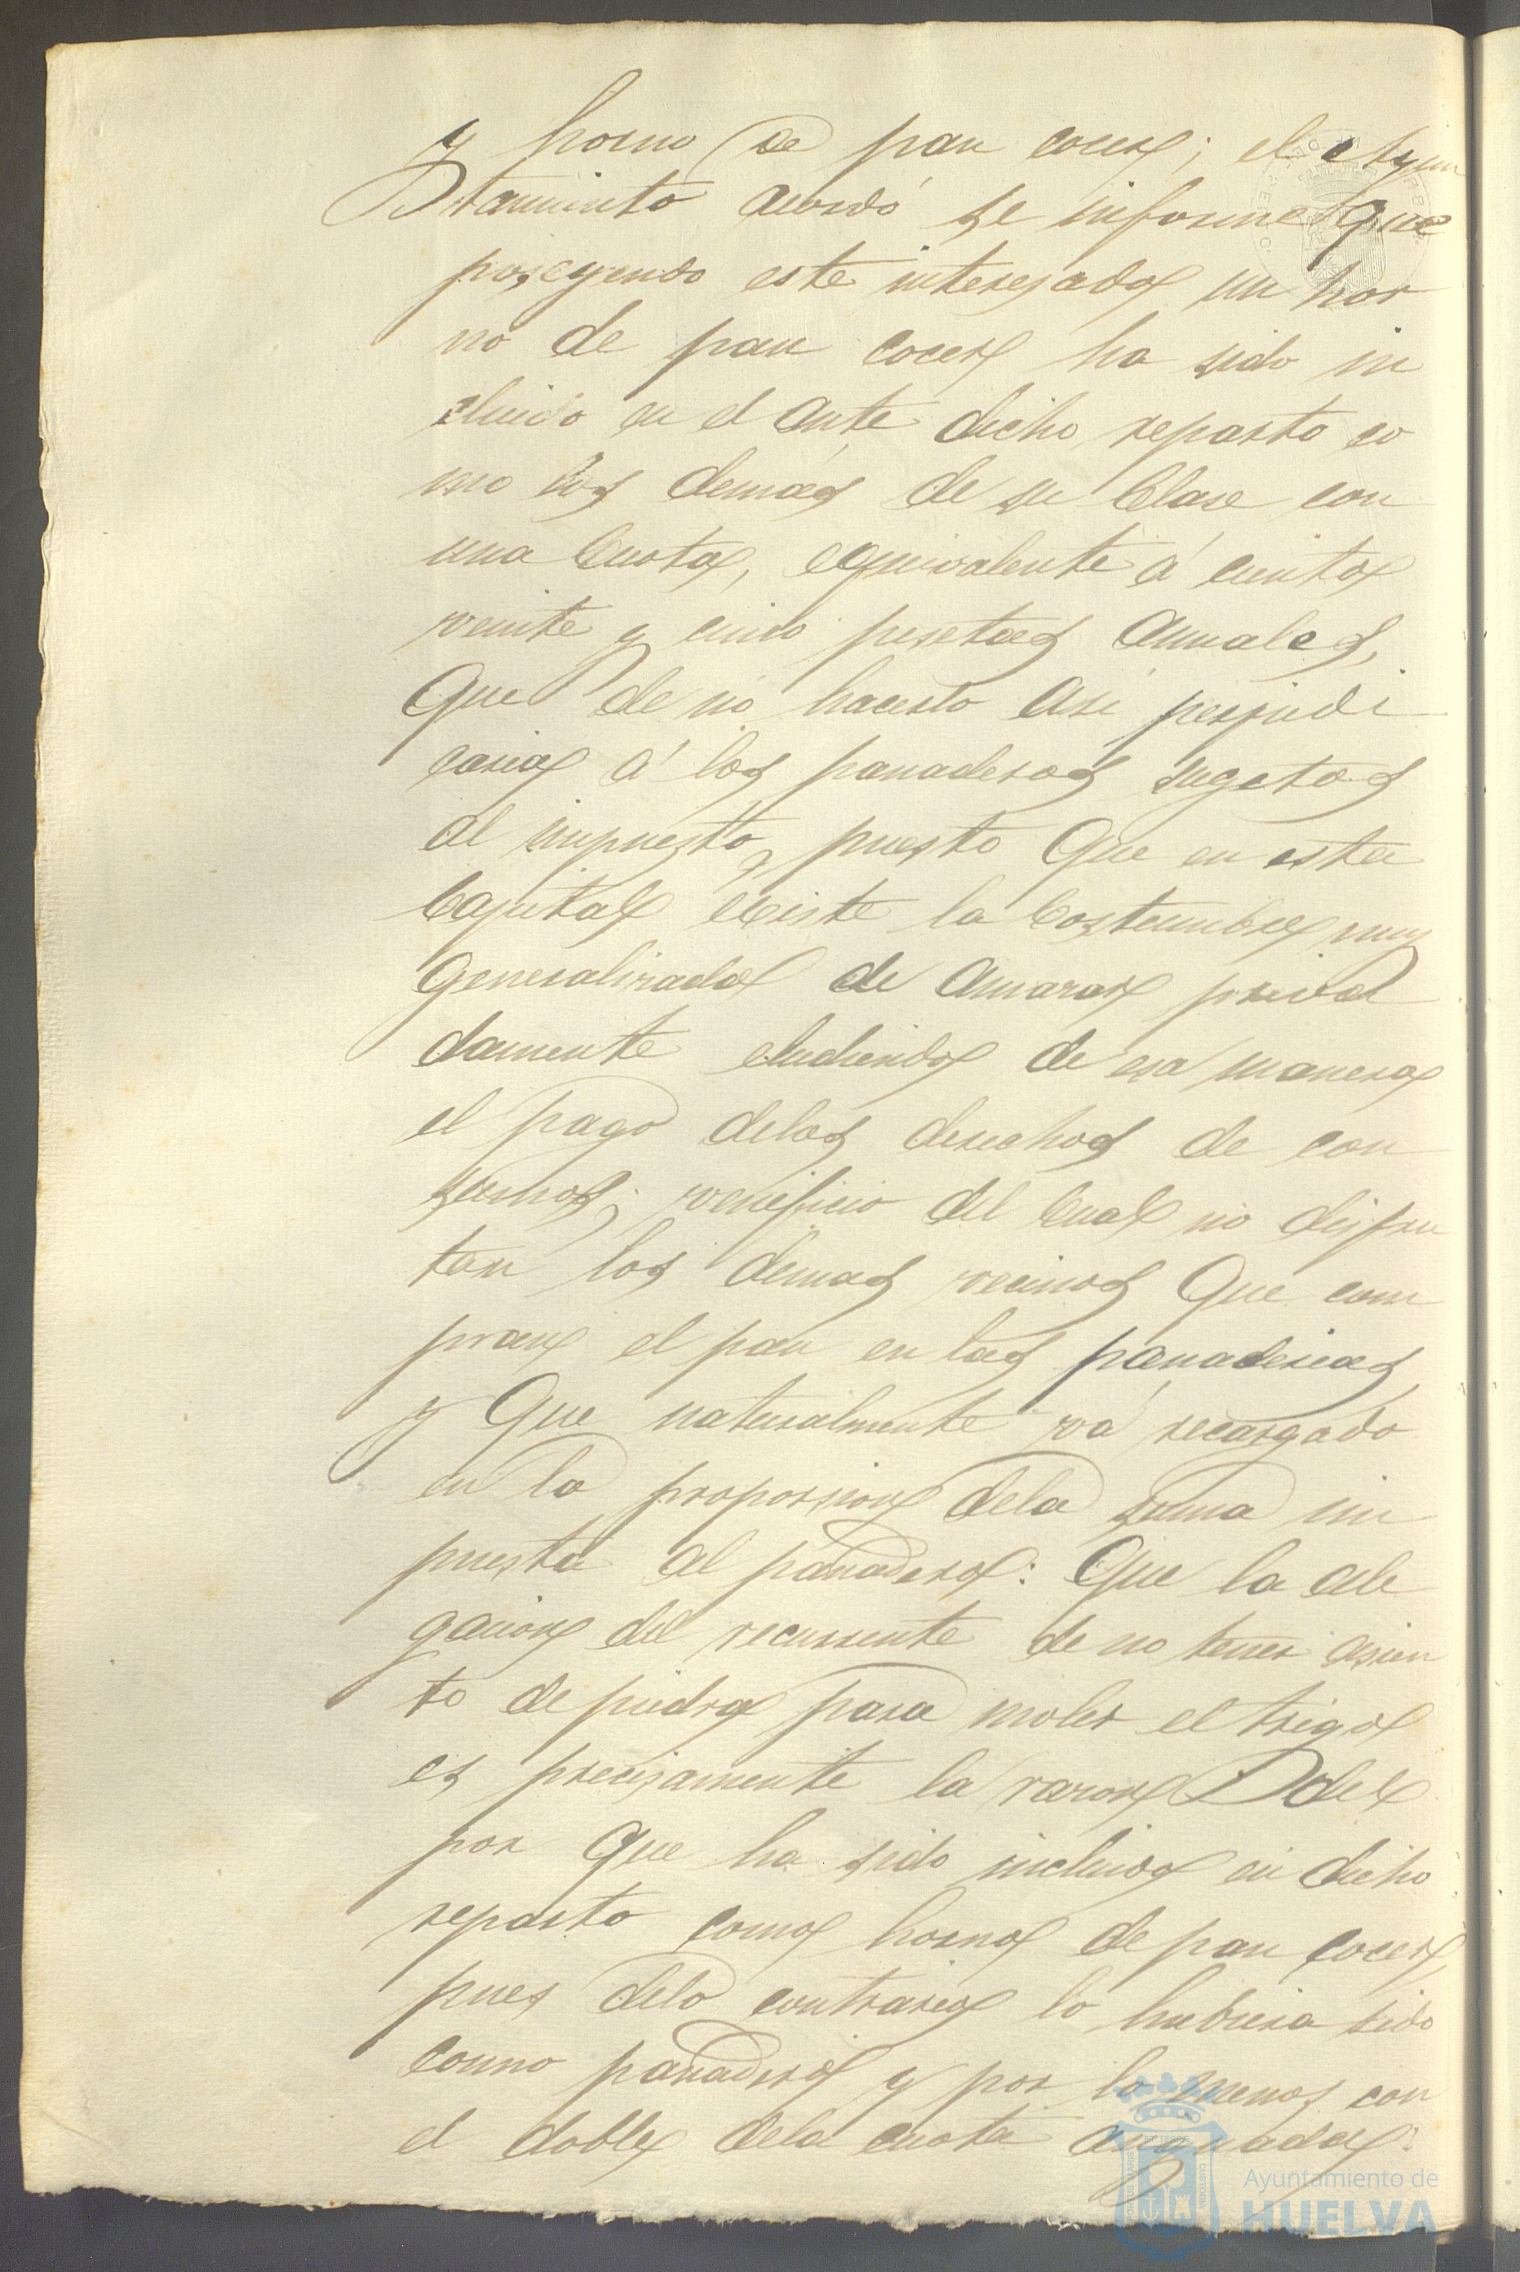 y horno de pan cocer; el Ayun
tamiento acordó se informe que
poseyendo este interesado un hor
no de pan cocer ha sido in
cluido en el ante dicho reparto co
mo los demás de su clase con
una cuota, equivalente á ciento
veinte y cinco pesetas anuales,
que de no hacerlo asi perjudi
caria á los panaderos sugetos
al impuesto, puesto que en esta
Capital existe la costumbre muy
generalizada de amasar priva
damente eludiendo de esa manera
el pago delos derechos de con
sumos; veneficio del cual no disfru
tan los demas vecinos que com
pran el pan en las panaderias
y que naturalmente vá recargado
en la proporsion dela suma im
puesta al panadero: Que la ale
gacion del recurrente de no tener asien
to de piedra para moler el trigo
es precisamente la razon del
por que ha sido incluido en dicho
reparto como horno de pan cocer,
pues delo contrario lo hubiera sido
como panadero y por lo menos con
el doble dela cuota asignada:
Ayuntamiento de
HUELVA